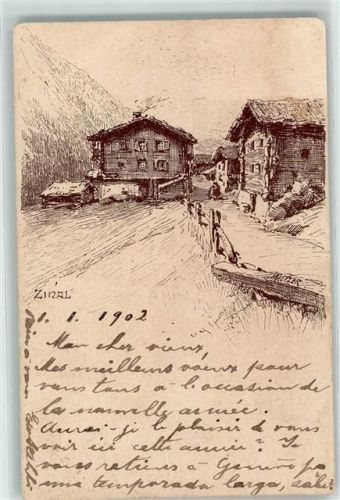 ZINAL
1. 1. 1902
Mon cher vieux,
Mes meilleurs voeux pour
vous tous à l'occasion de
la nouvelle année.
Aurai-je le plaisir de vous
voir ici cette année? Je
vous retiens à Genève
una temporada larga,